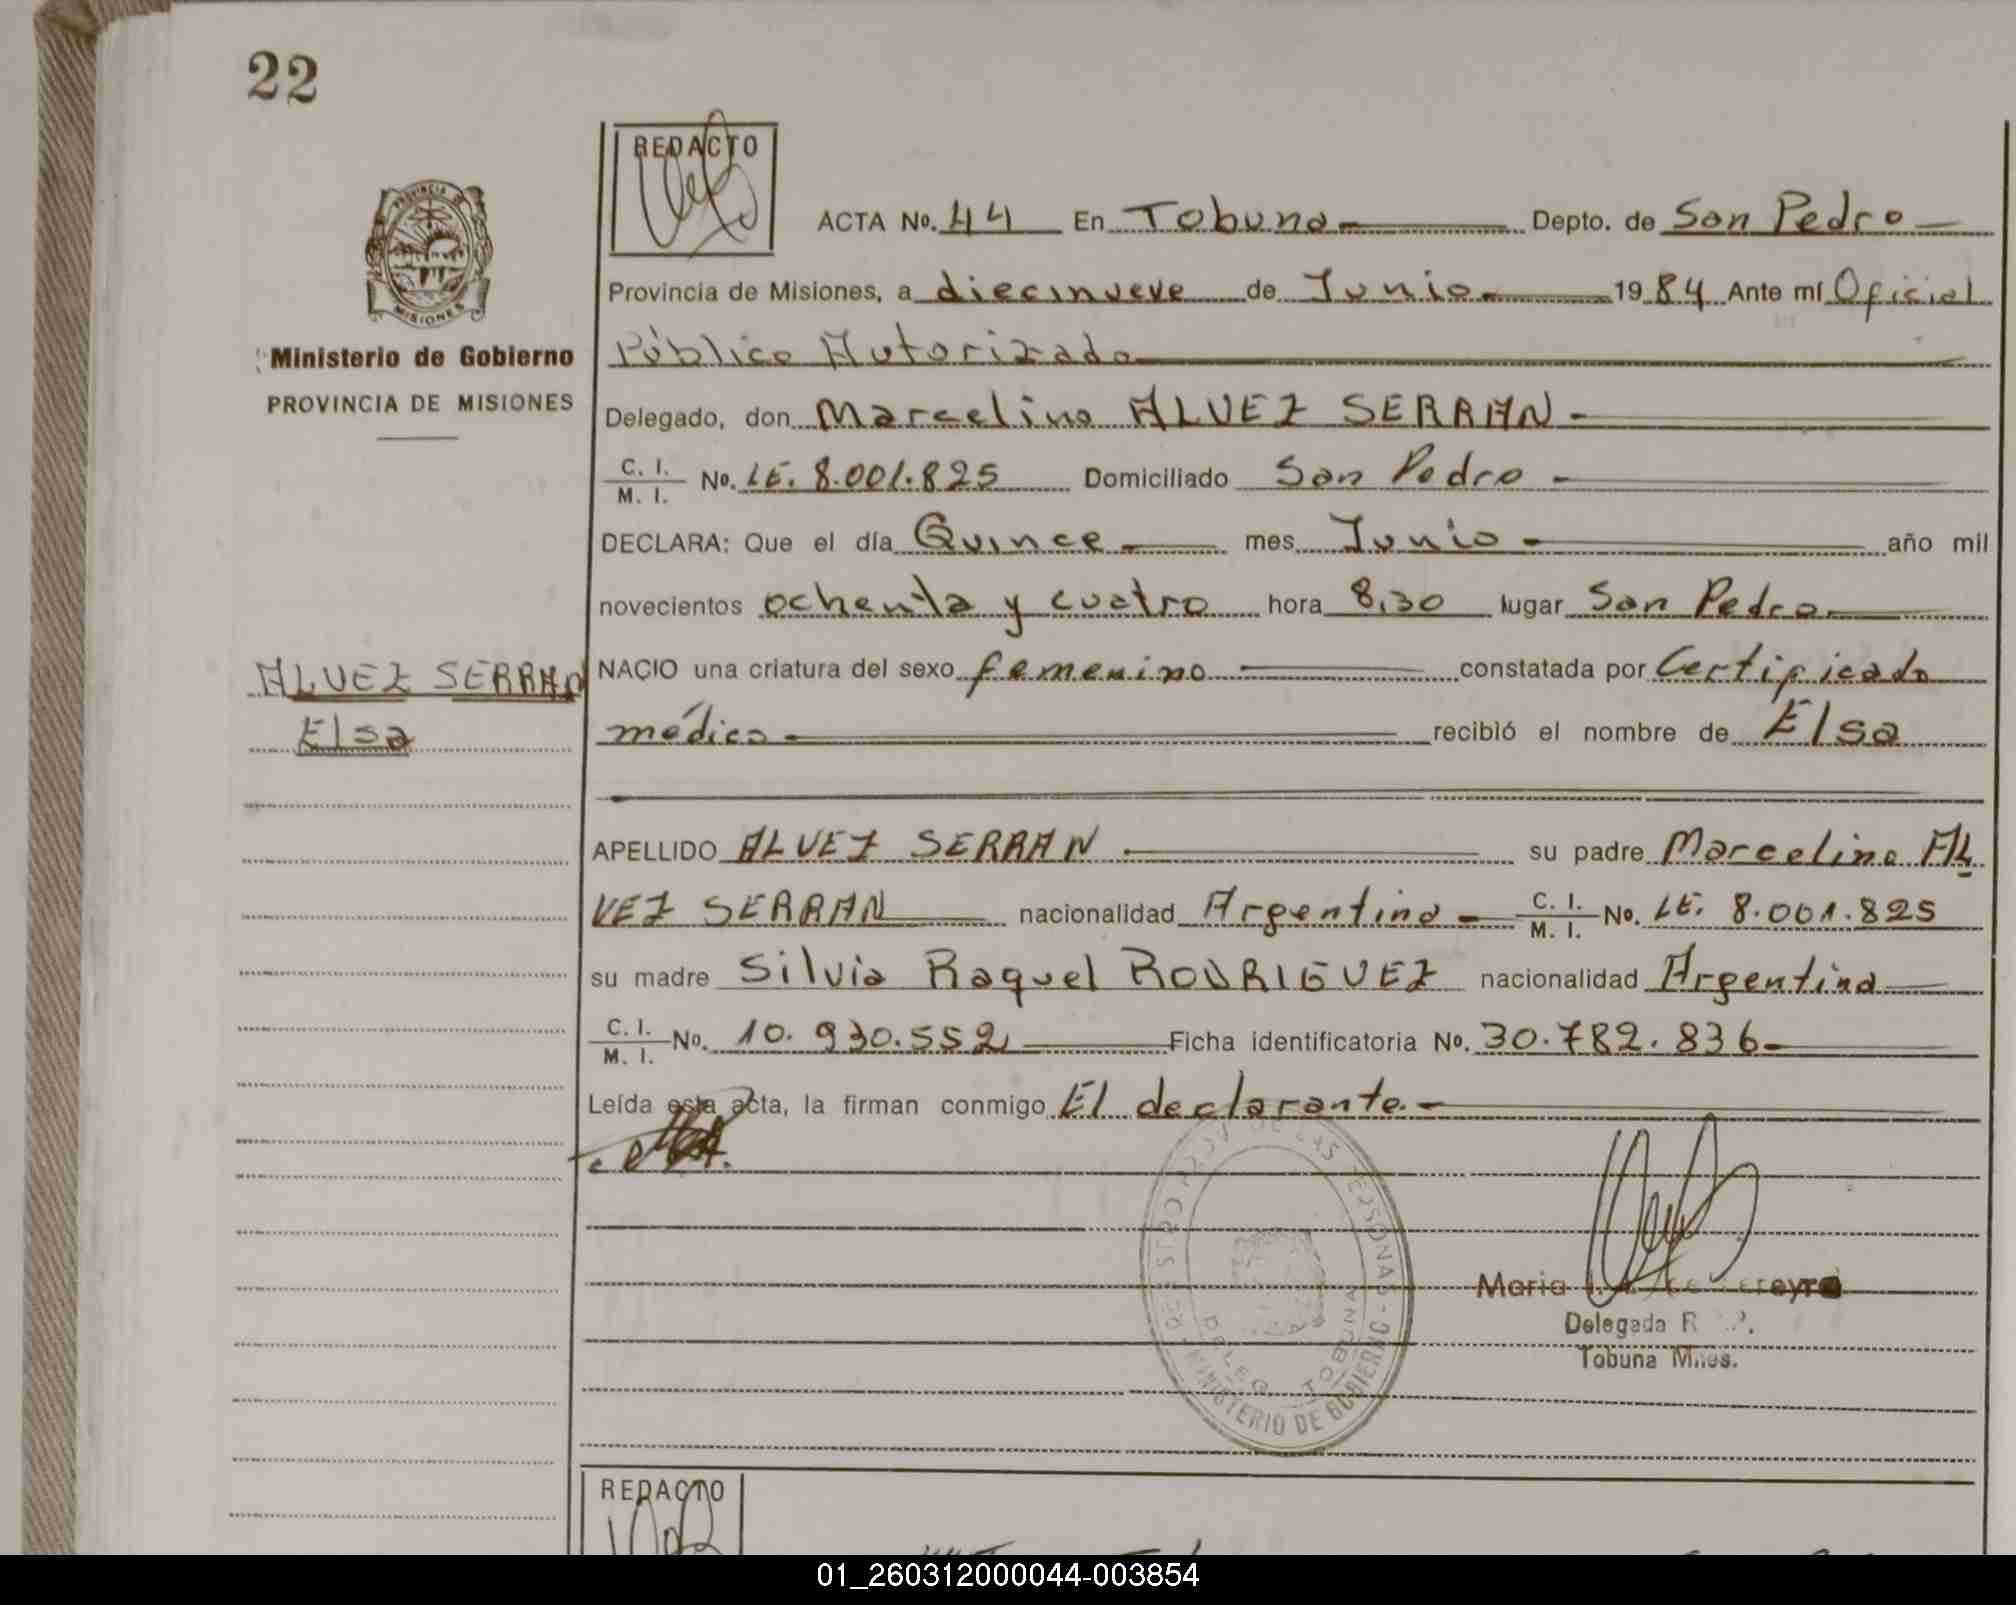 22
REDACTO
ACTA No. 44 En Tobuna Depto. de San Pedro
Provincia de Misiones, a diecinueve de Junio 1984 Ante mí Oficial
Público Autorizado
Delegado, don Marcelino ALVEZ SERRAN
C. I.
M. I. No. LE. 8.001.825 Domiciliado San Pedro
DECLARA: Que el día Quince mes Junio año mil
novecientos ochenta y cuatro hora 8,30 lugar San Pedro
NACIO una criatura del sexo femenino constatada por Certificado
médico recibió el nombre de Elsa
APELLIDO ALVEZ SERRAN su padre Marcelino AL
VEZ SERRAN nacionalidad Argentina C. I. M. I. No. LE. 8.001.825
su madre Silvia Raquel RODRIGUEZ nacionalidad Argentina
C. I.
M. I. No. 10.930.552 Ficha identificatoria No. 30.782.836
Leída esta acta, la firman conmigo El declarante.
PROVINCIA DE
MISIONES
Ministerio de Gobierno
PROVINCIA DE MISIONES
ALVEZ SERRAN
Elsa
DE LAS PERSONAS
MINISTERIO DE GOBIERNO
DELEG. TOBUNA
Maria
Delegada R P.
Tobuna Mnes.
REDACTO
01_260312000044-003854